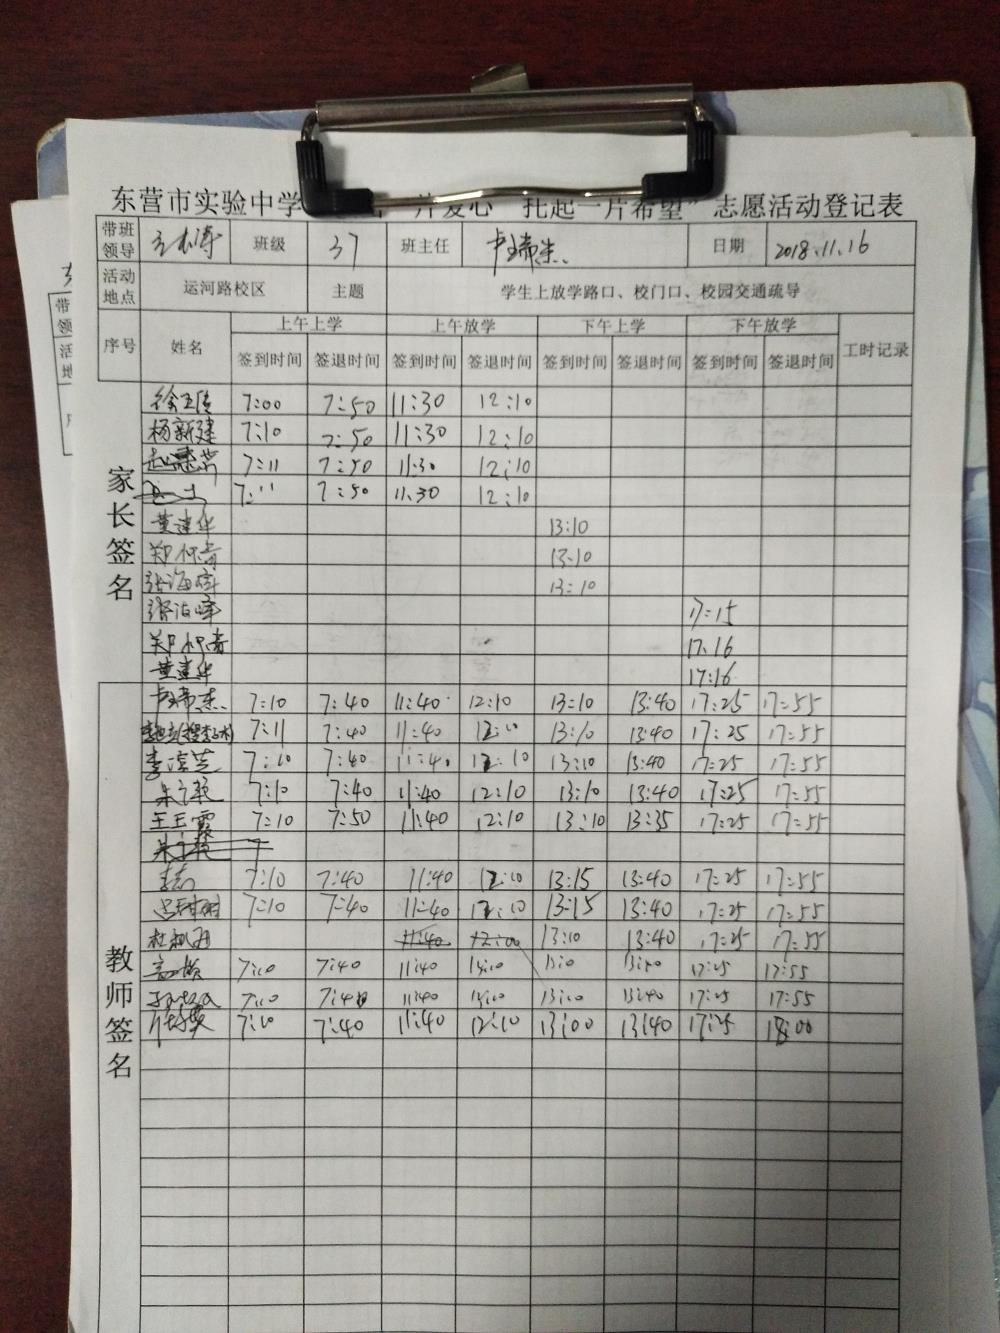 东营市实验中学 片爱心 托起一片希望”志愿活动登记表
带班领导 班级 37 班主任 卢瑞杰 日期 2018.11.16
活动地点 运河路校区 主题 学生上放学路口、校门口、校园交通疏导
序号 姓名 上午上学 上午放学 下午上学 下午放学 工时记录
签到时间 签退时间 签到时间 签退时间 签到时间 签退时间 签到时间 签退时间
家长签名
7:00 7:50 11:30 12:10
杨新建 7:10 7:50 11:30 12:10
7:11 7:50 11:30 12:10
7:11 7:50 11.30 12:10
黄建华 13:10
13:10
13:10
17:15
17.16
黄建华 17:16
教师签名
卢瑞杰 7:10 7:40 11:40 12:10 13:10 13:40 17:25 17:55
7:11 7:40 11:40 12:10 13:10 13:40 17:25 17:55
7:10 7:40 11:40 12:10 13:10 13:40 17:25 17:55
7:10 7:40 11:40 12:10 13:10 13:40 17:25 17:55
王玉霞 7:10 7:50 11:40 12:10 13:10 13:35 17:25 17:55
7:10 7:40 11:40 12:10 13:15 13:40 17:25 17:55
7:10 7:40 11:40 12:10 13:15 13:40 17:25 17:55
11:40 12:00 13:10 13:40 17:25 17:55
7:10 7:40 11:40 13:40 17:25 17:55
7:10 11:40 13:10 13:40 17:25 17:55
7:10 7:40 11:40 12:10 13:00 13:40 17:25 18:00